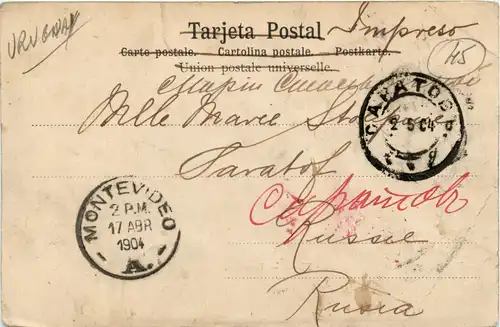 URUGUAY
Tarjeta Postal Impreso
Carte postale. Cartolina postale. Postkarte.
Union postale universelle.
45
Mlle Marie
САРАТОВЪ
2 5 04
Saratof
Саратовъ
MONTEVIDEO
2 P.M.
17 ABR
1904
A.
Russie
Rusia